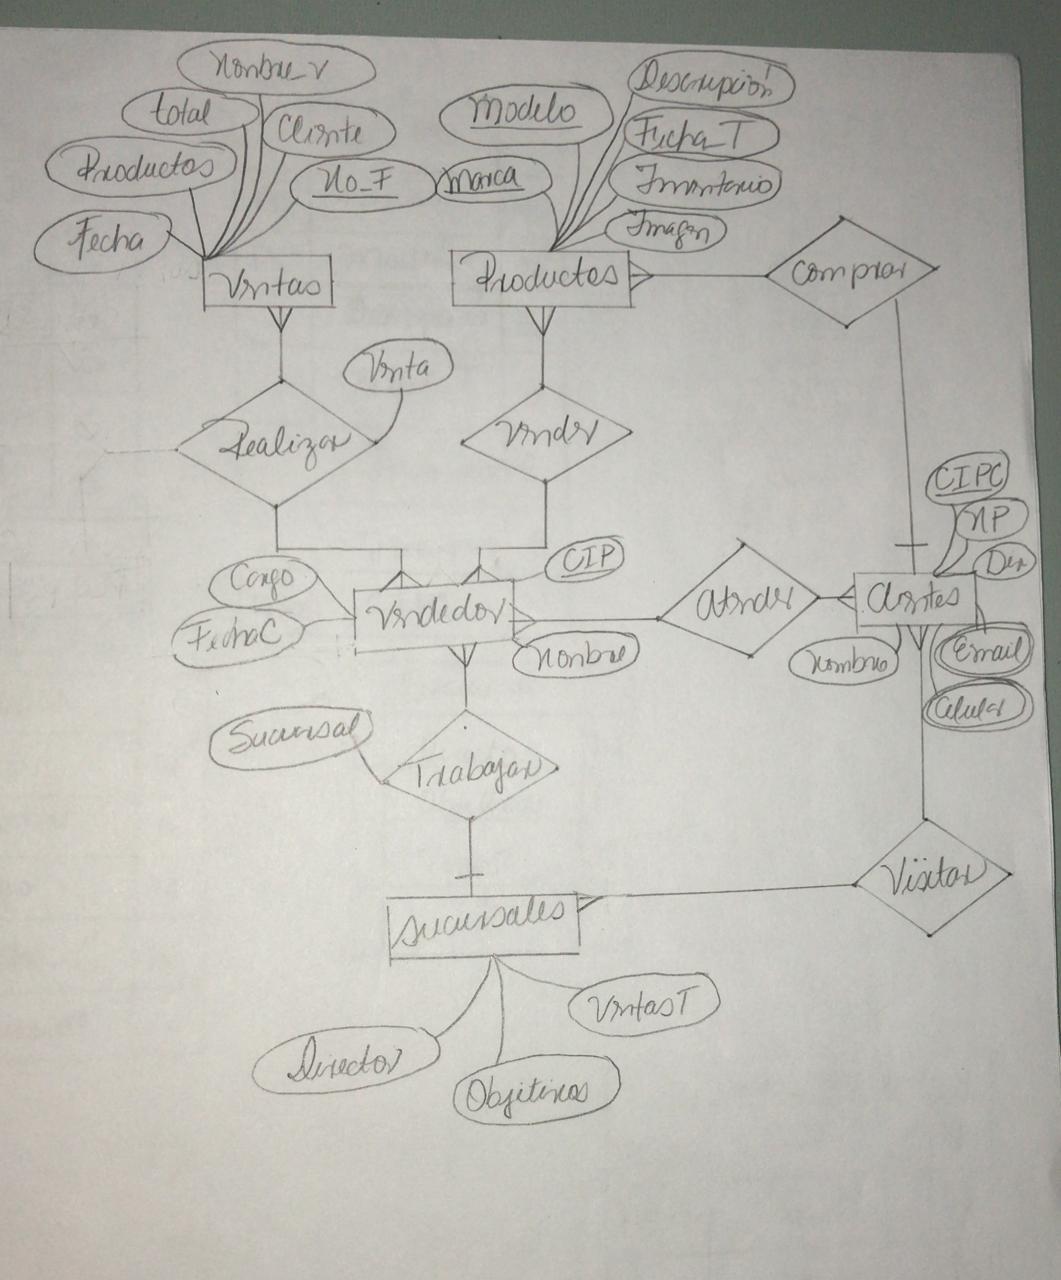 Nombre_V
total
Cliente
Productos
No_F
Fecha
Ventas
Modelo
Descripción
Fecha_T
Marca
Inventario
Imagen
Productos
Comprar
Venta
Realizar
Vender
CIPC
NP
Dir
CIP
Cargo
FechaC
Vendedor
Nombre
Atender
Clientes
Nombre
Email
Celular
Sucursal
Trabajar
Visitar
Sucursales
VentasT
Director
Objetivos